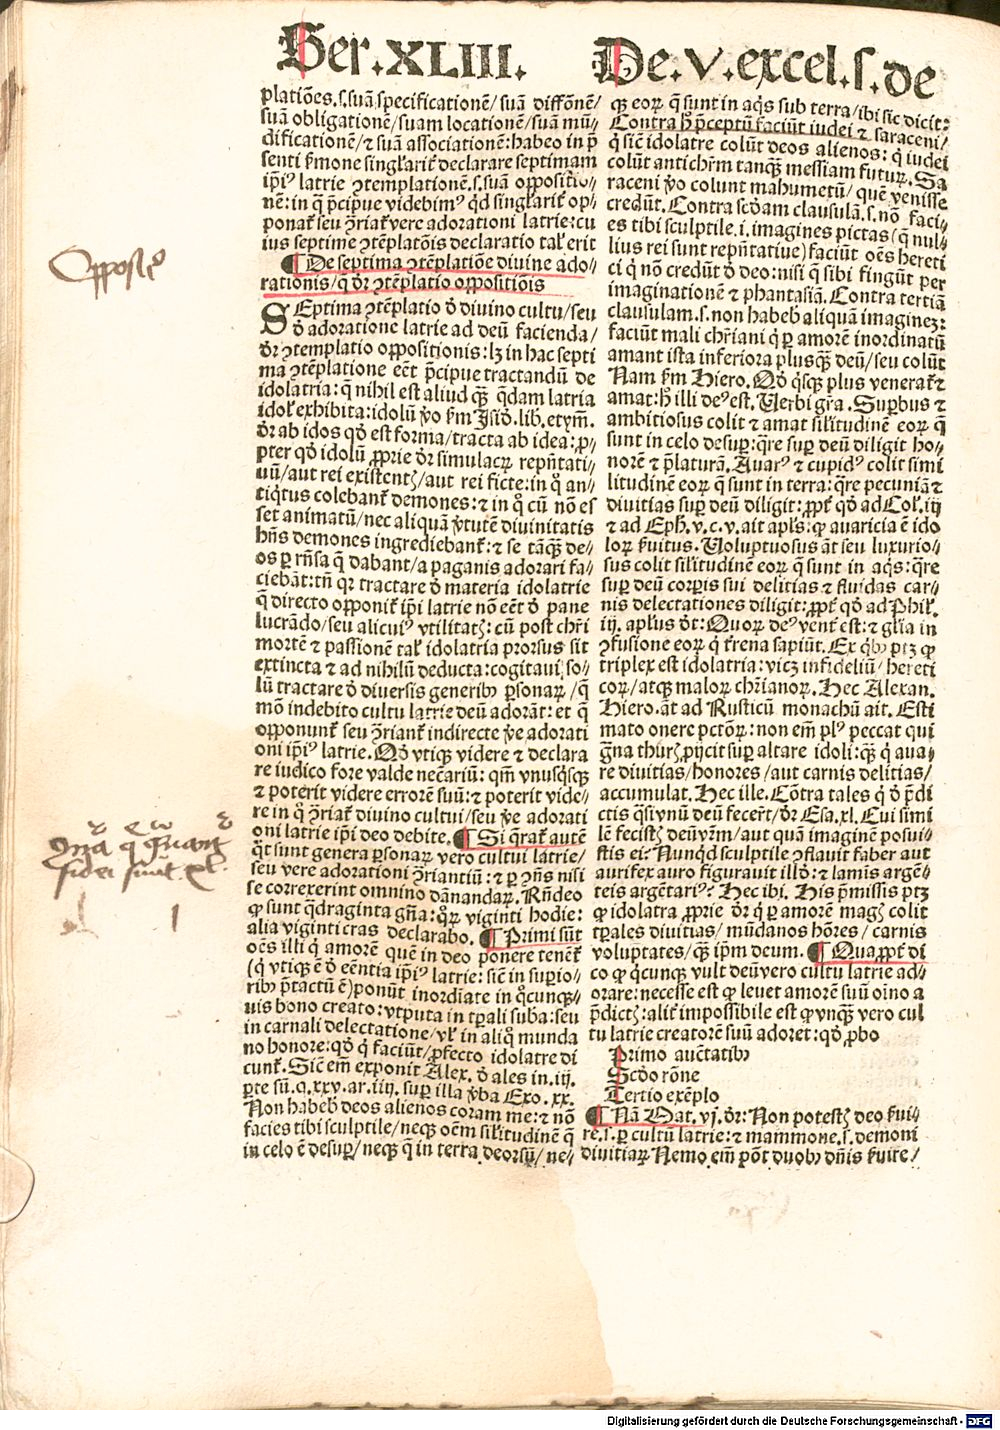 Ser.XLIII. De.V.excel.s.de
platiões.s.suã specificationẽ/suã diffõnẽ/
suã obligationẽ/suam locationẽ/suã mũ//
dificationẽ/⁊ suã associationẽ: habeo in p̄
senti ẜmone singl'ariť declarare septimam
ip̄iꝰ latrie ꝯtemplationẽ.s.suã oppositio//
nẽ: in q̄ p̄cipue videbimꝰ qđ singl'ariť op//
ponať seu ꝯ̃riať vere adorationi latrie: cu
ius septime ꝯtẽplatõis declaratio tal' erit
¶ De septima ꝯtẽplatiõe diuine ado//
rationis/q̄ đr ꝯtẽplatio oppositiõis
SEptima ꝯtẽplatio đ diuino cultu/seu
đ adoratione latrie ad deũ facienda/
đr ꝯtemplatio oppositionis: lꝫ in hac septi
ma ꝯtẽplatione eẽt p̄cipue tractandũ de
idolatria: q̄ nihil est aliud qꝫ̃ qdam latria
idol' exhibita: idolũ ꝟo ẜm Jsiđ.lib.etym̃.
đr ab idos qđ est forma/tracta ab idea: ꝓ//
pter qđ idolũ ꝓprie đr simulacrꝝ rep̃ntati//
uũ/aut rei existentꝭ/aut rei ficte: in q̊ an//
tiq̇tus colebanť demones: ⁊ in q̊ cũ nõ es
set animatũ/nec aliquã ꝟtutẽ diuinitatis
hñs demones ingrediebanť: ⁊ se tãqꝫ̃ de//
os ꝑ rñsa q̄ dabant/a paganis adorari fa//
ciebãt: tñ qꝛ tractare đ materia idolatrie
q̄ directo opponiť ip̄i latrie nõ eẽt đ pane
lucrãdo/seu alicuiꝰ vtilitatꝭ: cũ post chr̃i
mortẽ ⁊ passionẽ tal' idolatria prorsus sit
extincta ⁊ ad nihilũ deducta: cogitaui so//
lũ tractare đ diuersis generibꝫ ꝑsonaꝝ/q̄
mõ indebito cultu latrie deũ adorãt: et q̄
opponunť seu ꝯ̃rianť indirecte ꝟe adorati
oni ip̄iꝰ latrie. Qđ vtiqꝫ videre ⁊ declara
re iudico fore valde necẽariũ: qm̃ vnusq̇sqꝫ
⁊ poterit videre errorẽ suũ: ⁊ poterit vide//
re in q̊ ꝯ̃riať diuino cultui/seu ꝟe adorati
oni latrie ip̄i deo debite. ¶ Si q̄rať autẽ
q̊t sunt genera ꝑsonaꝝ vero cultui latrie/
seu vere adorationi ꝯ̃riantiũ: ⁊ ꝑ ꝯñs nisi
se correxerint omnino dãnandaꝝ. Rñdeo
ꝙ sunt q̈draginta gña: q̊ꝝ viginti hodie:
alia viginti cras declarabo. ¶ Primi sũt
oẽs illi q̇ amorẽ quẽ in deo ponere tenẽť
(q̇ vtiqꝫ ẽ đ eẽntia ip̄iꝰ latrie: sic̃ in supio//
ribꝫ p̄tactũ ẽ) ponũt inordĩate in q̊cunqꝫ//
uis bono creato: vtputa in tp̃ali suba: seu
in carnali delectatione/vl' in aliq̊ munda
no honore: qđ q̇ faciũt/ꝓfecto idolatre di
cunť. Sic̃ em̃ exponit Alex. đ ales in.iij.
ꝑte sũ.q.xxv.ar.iiij. suꝑ illa ꝟba Exo.xx.
Non habebꝭ deos alienos coram me: ⁊ nõ
facies tibi sculptile/neqꝫ oẽm sil'itudinẽ q̄
in celo ẽ desuꝑ/neqꝫ q̄ in terra deorsũ/ne//
qꝫ eoꝝ q̄ sunt in aq̇s sub terra/ibi sic dicit:
Contra h̊ p̄ceptũ faciũt iudei ⁊ saraceni/
q̇ sic̃ idolatre colũt deos alienos: q̇ iudei
colũt antichr̃m tanqꝫ̃ messiam futuꝝ. Sa
raceni ꝟo colunt mahumetũ/quẽ venisse
credũt. Contra scđam clausulã.s.nõ faci//
es tibi sculptile.i.imagines pictas (q̄ nul//
lius rei sunt rep̃ntatiue) faciũt oẽs hereti
ci q̇ nõ credũt đ deo: nisi q̄ sibi fingũt per
imaginationẽ ⁊ phantasiã. Contra tertiã
clausulam.s.non habebꝭ aliquã imaginẽ:
faciũt mali chr̃iani q̇ ꝑ amorẽ inordinatũ
amant ista inferiora plusqꝫ̃ deũ/seu colũt
Nam ẜm Hiero. Qđ q̇sqꝫ plus venerať ⁊
amat: h̊ illi deꝰ est. Verbi gr̃a. Suꝑbus ⁊
ambitiosus colit ⁊ amat sil'itudinẽ eoꝝ q̄
sunt in celo desuꝑ: q̈re suꝑ deũ diligit ho//
norẽ ⁊ p̄laturã. Auarꝰ ⁊ cupidꝰ colit simi
litudinẽ eoꝝ q̄ sunt in terra: q̈re pecuniã ⁊
diuitias suꝑ deũ diligit: ꝓpť qđ ad Col'.iij
⁊ ad Eph̃.v.c.v.ait apl's: ꝙ auaricia ẽ ido
loꝝ ẜuitus. Voluptuosus ãt seu luxurio//
sus colit sil'itudinẽ eoꝝ q̄ sunt in aq̇s: q̈re
suꝑ deũ corꝑis sui delitias ⁊ fluidas car//
nis delectationes diligit: ꝓpť qđ ad Phil'.
iij. apl'us đt: Quoꝝ deꝰ venť est: ⁊ gl'ia in
ꝯfusione eoꝝ q̇ ťrena sapiũt. Ex q̇bꝫ ptꝫ ꝙ
triplex est idolatria: vicꝫ infideliũ/hereti
coꝝ/atqꝫ maloꝝ chr̃ianoꝝ. Hec Alexan.
Hiero. ãt ad Rusticũ monachũ ait. Esti
mato onere pctõꝝ: non em̃ plꝰ peccat qui
gña thurꝭ ꝓijcit suꝑ altare idoli: qꝫ̃ q̇ aua//
re diuitias/honores/aut carnis delitias/
accumulat. Hec ille. Cõtra tales q̇ đ p̄di
ctis q̈si vnũ deũ fecerť/đr Esa.xl. Cui simi
lẽ fecistꝭ deũ vr̃m/aut quã imaginẽ posui//
stis ei? Nunqđ sculptile ꝯflauit faber aut
aurifex auro figurauit illđ: ⁊ lamĩs argẽ//
teis argẽtariꝰ? Hec ibi. His p̄missis ptꝫ
ꝙ idolatra ꝓprie đr q̇ ꝑ amorẽ magꝭ colit
tp̃ales diuitias/mũdanos hõres/carnis
voluptates/qꝫ̃ ip̄m deum. ¶ Quaꝓpť di
co ꝙ q̇cunqꝫ vult deũ vero cultu latrie ad//
orare: necesse est ꝙ leuet amorẽ suũ oĩno a
p̄dictꝭ: aliť impossibile est ꝙ vnqꝫ̃ vero cul
tu latrie creatorẽ suũ adoret: qđ ꝓbo
Primo auc̃tatibꝫ
Scđo rõne
Tertio exẽplo
¶ Nã Mat.vj. đr: Non potestꝭ deo ẜui//
re.s.ꝑ cultũ latrie: ⁊ mammone.s.demoni
diuitiaꝝ Nemo em̃ põt duobꝫ dñis ẜuire/
Digitalisierung gefördert durch die Deutsche Forschungsgemeinschaft - DFG